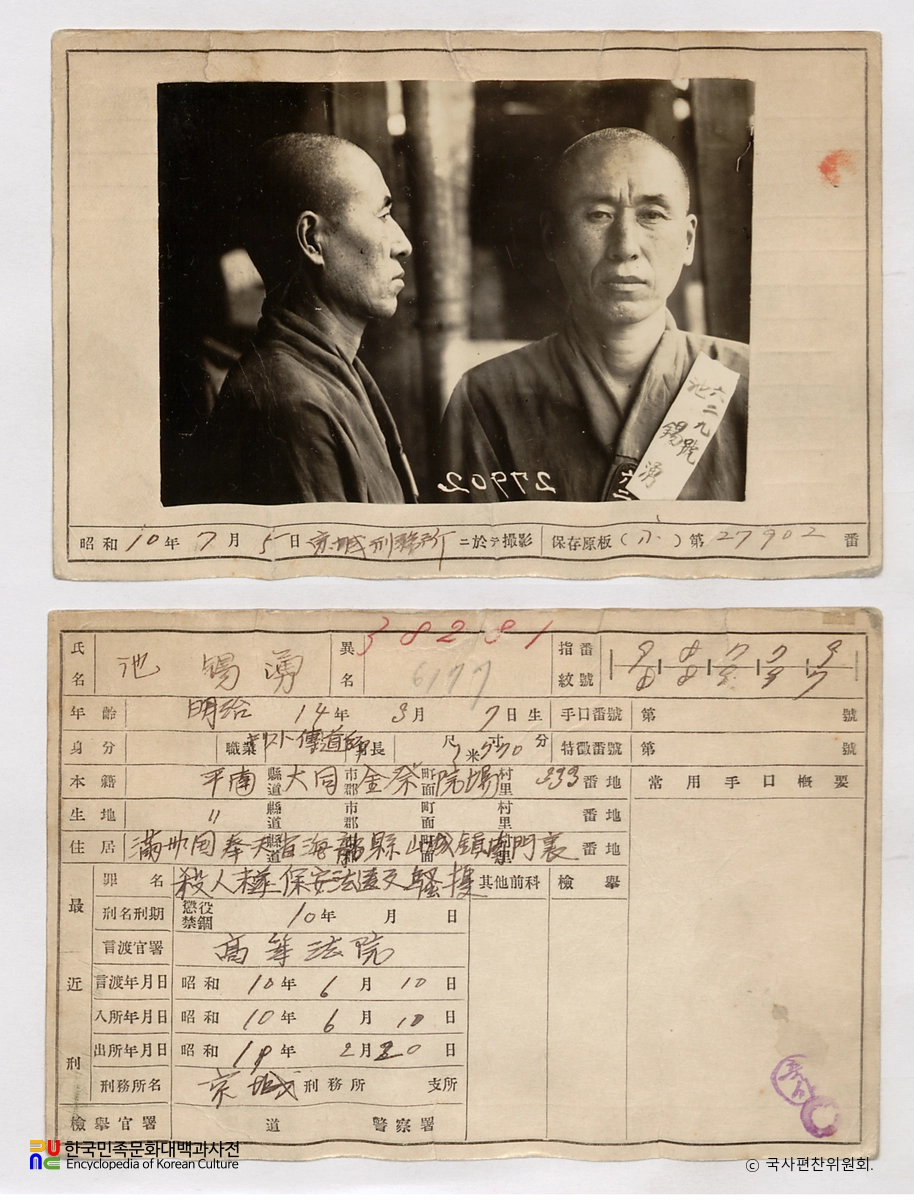 六二九號
池錫湧
27902
昭和10年7月5日京城刑務所ニ於テ撮影 保存原板(小)第27902番
38281
氏名 池錫湧 異名 6177 指紋番號
年齡 明治14年3月7日生 手口番號 第 號
身分 職業 キリスト傳道師 身長 尺寸分 米 特徵番號 第 號
本籍 平南縣道大同市郡金祭町面院場村里333番地 常用手口概要
生地 〃 縣道 市郡 町面 村里 番地
住居 滿州国奉天省海龍縣山城鎮南門裏 番地
最近刑
罪名 殺人 保安法違反 騷擾 其他前科 檢擧
刑名刑期 懲役 禁錮 10年 月 日
言渡官署 高等法院
言渡年月日 昭和10年6月10日
入所年月日 昭和10年6月10日
出所年月日 昭和19年2月20日
刑務所名 京城刑務所 支所
檢擧官署 道 警察署
한국민족문화대백과사전
Encyclopedia of Korean Culture
© 국사편찬위원회.